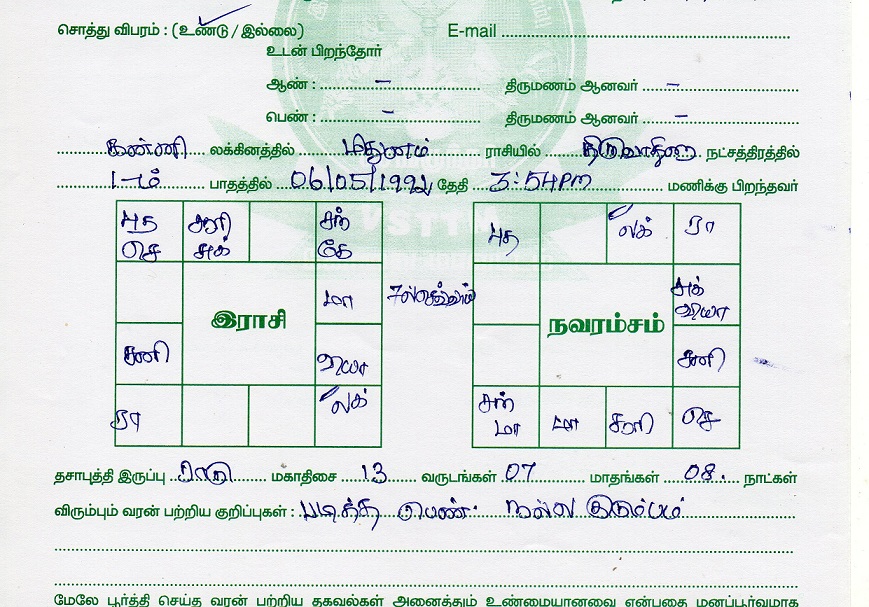 சொத்து விபரம் : (உண்டு / இல்லை) E-mail
உடன் பிறந்தோர்
ஆண் : – திருமணம் ஆனவர் –
பெண் : – திருமணம் ஆனவர் –
கன்னி லக்கினத்தில் மிதுனம் ராசியில் திருவாதிரை நட்சத்திரத்தில்
1-ம் பாதத்தில் 06/05/1992 தேதி 3:54PM மணிக்கு பிறந்தவர்
புத சூரி சந் புத லக் ரா
செ சுக் கே
மா 7ல் செவ்வாய் சுக்
வியா
இராசி நவாம்சம்
சனி வியா சனி
ரா லக் சந் மா சூரி செ
மா
தசாபுத்தி இருப்பு ராகு மகாதிசை 13 வருடங்கள் 07 மாதங்கள் 08 நாட்கள்
விரும்பும் வரன் பற்றிய குறிப்புகள் : படித்த பெண். நல்ல குடும்பம்
மேலே பூர்த்தி செய்த வரன் பற்றிய தகவல்கள் அனைத்தும் உண்மையானவை என்பதை மனப்பூர்வமாக